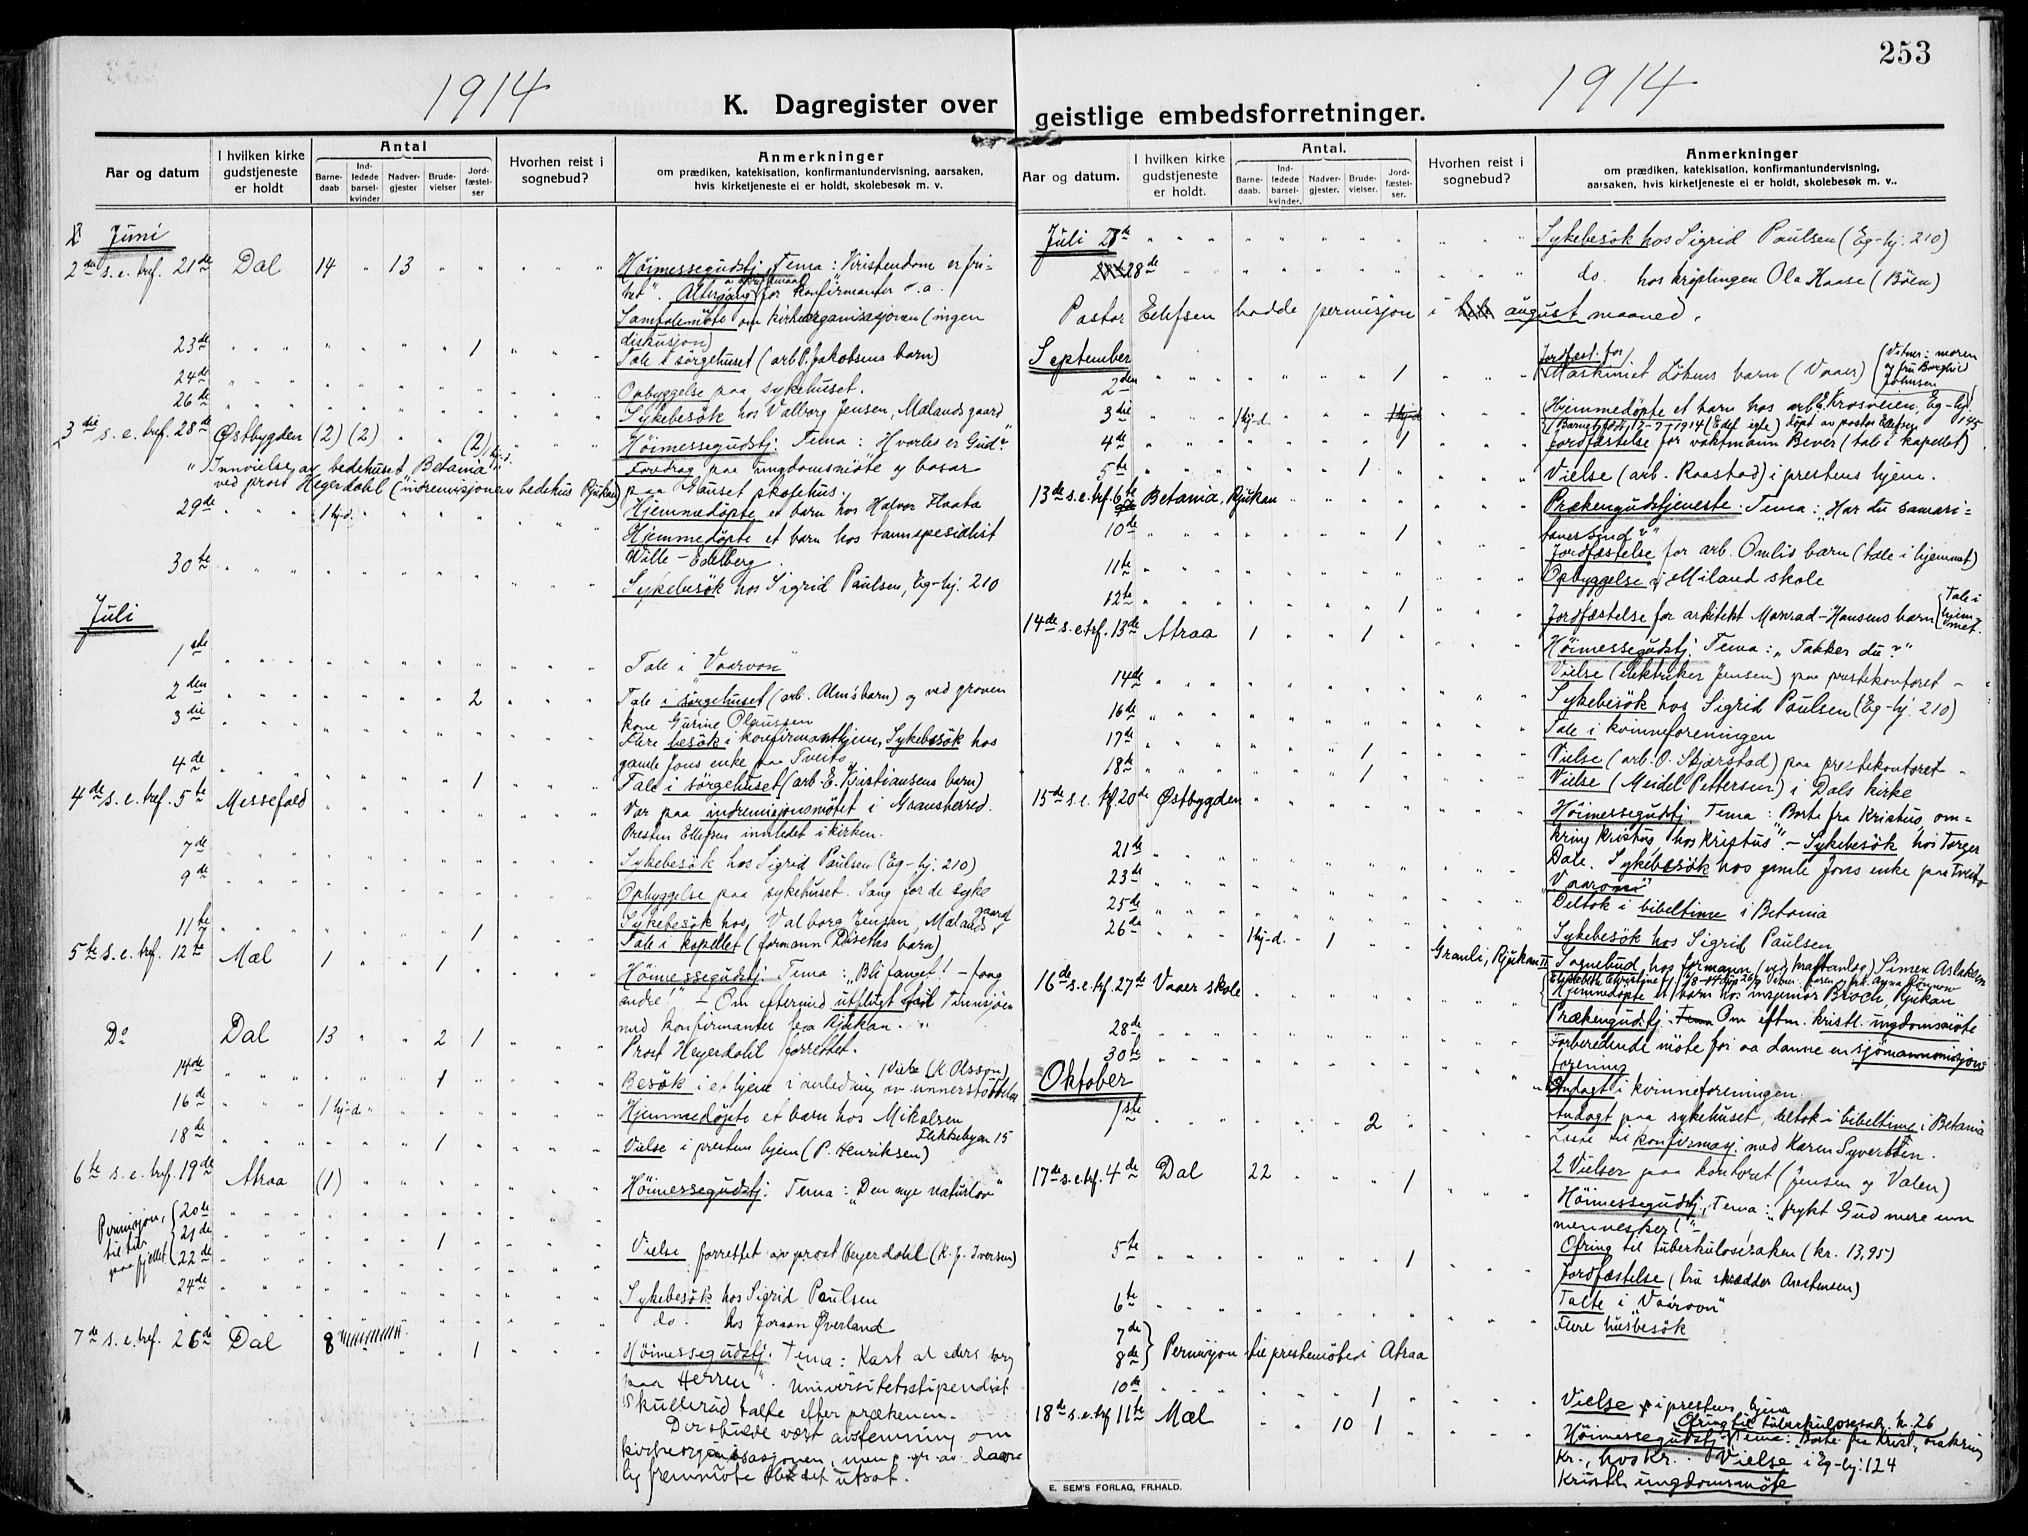 253
1914
1914
K. Dagregister over
geistlige embedsforretninger.
Aar og datum
I hvilken kirke gudstjeneste er holdt
Antal
Barne-daab
Ind-ledede barsel-kvinder
Nadver-gjester
Brude-vielser
Jord-fæstel-ser
Hvorhen reist i sognebud?
Anmerkninger
om prædiken, katekisation, konfirmantundervisning, aarsaken,
hvis kirketjeneste ei er holdt, skolebesøk m. v.
Juni
2den s. e. tref. 21de Dal 14 " 13 Höimessegudstj. Tema: Kristendom er fri-
het". Altergang for konfirmanter o. a.
Samtalemöte om kirkeorganisasjonen (ingen
diskusjon)
23de 1 Tale i sörgehuset (arb. P. Jakobsens barn)
24de Opbyggelse paa sykehuset.
26de Sykebesök hos Valborg Jensen, Mælandsgaard
3die s. e. tref. 28de Østbygden (2) (2) (2) Höimessegudstj. Tema: Hvorles er Gud?
" Innvielse av bedehuset Betania 1 hj-d. Foredrag paa ungdomsmöte og basar
ved prost Hegerdahl (indremisjonens bedehus Rjukan) paa skolehus.
29de 1 hj-d. Hjemmedöpte et barn hos Halvor Flaata
Hjemmedöpte et barn hos tannspesialist
Wille-Edelberg.
30te Sykebesök hos Sigrid Paulsen, Eg-hj. 210
Juli
1ste Tale i "Vaarvon"
2den 2 Tale i sörgehuset (arb. Almsbarn) og ved graven
kone Gurine Olaussen
3die Flere besök i konfirmanthjem, Sykebesök hos
gamle Jons enke paa Tveito
4de 1 Tale i sörgehuset (arb. E. Kristiansens barn)
4de s. e. tref. 5te Messefald Var paa indremisjonsmötet i Gransherred.
Presten Ellefsen innledet i kirken.
7de Sykebesök hos Sigrid Paulsen (Eg-hj. 210)
9de Opbyggelse paa sykehuset. Sang for de syke
Sykebesök hos Valborg Jensen, Mælandsgaard
11te 1 Tale i kapellet (formann barn)
5te s. e. tref. 12te Mæl 1 " " 1 Höimessegudstj. Tema: "Bli fanget! - fang
andre!" - Om eftermid utflugt Tinnsjöen
med konfirmanter fra Rjukan.
Do Dal 13 " " 2 1 Prost Heyerdahl forrettet.
14de 1 Vielse (K. Olsson)
Besök i et hjem i anledning av unnerstöttelse
16de 1 hj-d. Hjemmedöpte et barn hos Mikalsen
Flekkebyen 15
18de 1 Vielse i prestens hjem (P. Henriksen)
6te s. e. tref. 19de Atraa (1) Höimessegudstj. Tema: "Den nye naturlov"
Permisjon, til tur paa fjellet
20de
21de
22de 1 Vielse forrettet av prost Heyerdahl (K. J. Iversen)
24de Sykebesök hos Sigrid Paulsen
do. hos Joraan Överland
7de s. e. tref. 26de Dal 8 1 Höimessegudstj. Tema: Kast al eders sorg
paa Herren". Universitetsstipendiat
Skullerud talte efter prækenen.
Der skulde vært avstemning om
kirkeorganisasjonen, men p. gr. av daar-
lig fremmöte blev det utsat.
Aar og datum.
I hvilken kirke gudstjeneste er holdt.
Antal.
Barne-daab.
Ind-ledede barsel-kvinder.
Nadver-gjester.
Brude-vielser.
Jord-fæstel-ser.
Hvorhen reist i sognebud?
Anmerkninger
om prædiken, katekisation, konfirmantundervisning,
aarsaken, hvis kirketjeneste ei er holdt, skolebesøk m. v..
Juli Sykebesök hos Sigrid Paulsen (Eg-hj. 210)
28de do. hos kröplingen Ola Haase (Böen)
Pastor Ellefsen hadde permisjon i august maaned.
September
2den 1 Jordfæst. for Maskinist Lökens barn (Vaaer) (Vitner: moren og fru Borghild Johnsen
3die 1 hj-d. Hjemmedöpte et barn hos arb. E. Krosveien Eg-hj. 145
(Barnet född 17-7-1914 döpt av pastor Ellefsen
4de 1 Jordfæstelse for vaktmann Bever (tale i kapellet)
5te 1 Vielse (arb. Raastad) i prestens hjem.
13de s. e. tref. 6te Betania, Rjukan Prækengudstjeneste. Tema: "Har du samari-
tanersind?"
10de 1 Jordfæstelse for arb. Omlis barn (tale i hjemmet)
11te Opbyggelse i Miland skole
12te 1 Jordfæstelse for arkitekt Monrad-Hansens barn (Tale i hjemmet.
14de s. e. tref. 13de Atraa 1 " " 1 Höimessegudstj. Tema: "Takker du?"
Vielse (elektriker Jensen) paa prestekontoret -
14de Sykebesök hos Sigrid Paulsen (Eg-hj. 210)
16de Tale i kvinneforeningen
17de 1 Vielse (arb. O. Stjørstad) paa prestekontoret -
18de 1 Vielse (Meidel Pettersen) i Dals kirke
15de s. e. tref. 20de Østbygden Höimessegudstj. Tema: Borte fra Kristus, om-
kring Kristus, hos Kristus". - Sykebesök hos Torger
Dale. Sykebesök hos gamle Jons enke paa Tveito
21de "Vaarvon"
23de Deltok i bibeltime i Betania
25de Sykebesök hos Sigrid Paulsen
26de 1 hj-d. " 1 Granli, Rjukan II Sognebud hos formann (ved kraftanlæg) Simen Aslaksen
Hjemmedöpte et barn hos ingeniör Broch, Rjukan
16de s. e. tref. 27de Vaaer skole Prækengudstj. Om eftm. kristl. ungdomsmöte
28de Forberedende möte for aa danne en sjömannsmisjons-
forening
30te Andagt i kvinneforeningen
Oktober
1ste 2 Andagt paa sykehuset, deltok i bibeltime i Betania
Læste til konfirmasj. med Karen Syvertsen.
2 Vielser paa kontoret (Jensen og Valen)
17de s. e. tref. 4de Dal 22 1 Höimessegudstj. Tema: "frykt Gud mere enn
mennesker!"
Ofring til tuberkulosesaken (kr. 13,95)
5te 1 Jordfæstelse (fru skrædder Arestensen)
6te Talte i "Vaarvon"
Flere husbesök
7de
8de Permisjon til prestemötet i Atraa
10de 1 Vielse i prestens hjem
Ofring til tuberkulosesak. kr. 26
18de s. e. tref 11te Mæl " " 10 1 Höimessegudstj. Tema: Borte fra Krist, omkring
Kr., hos Kr. Vielse i Eg-hj: 124
Kristl. ungdomsmöte
E. SEM'S FORLAG, FR.HALD.